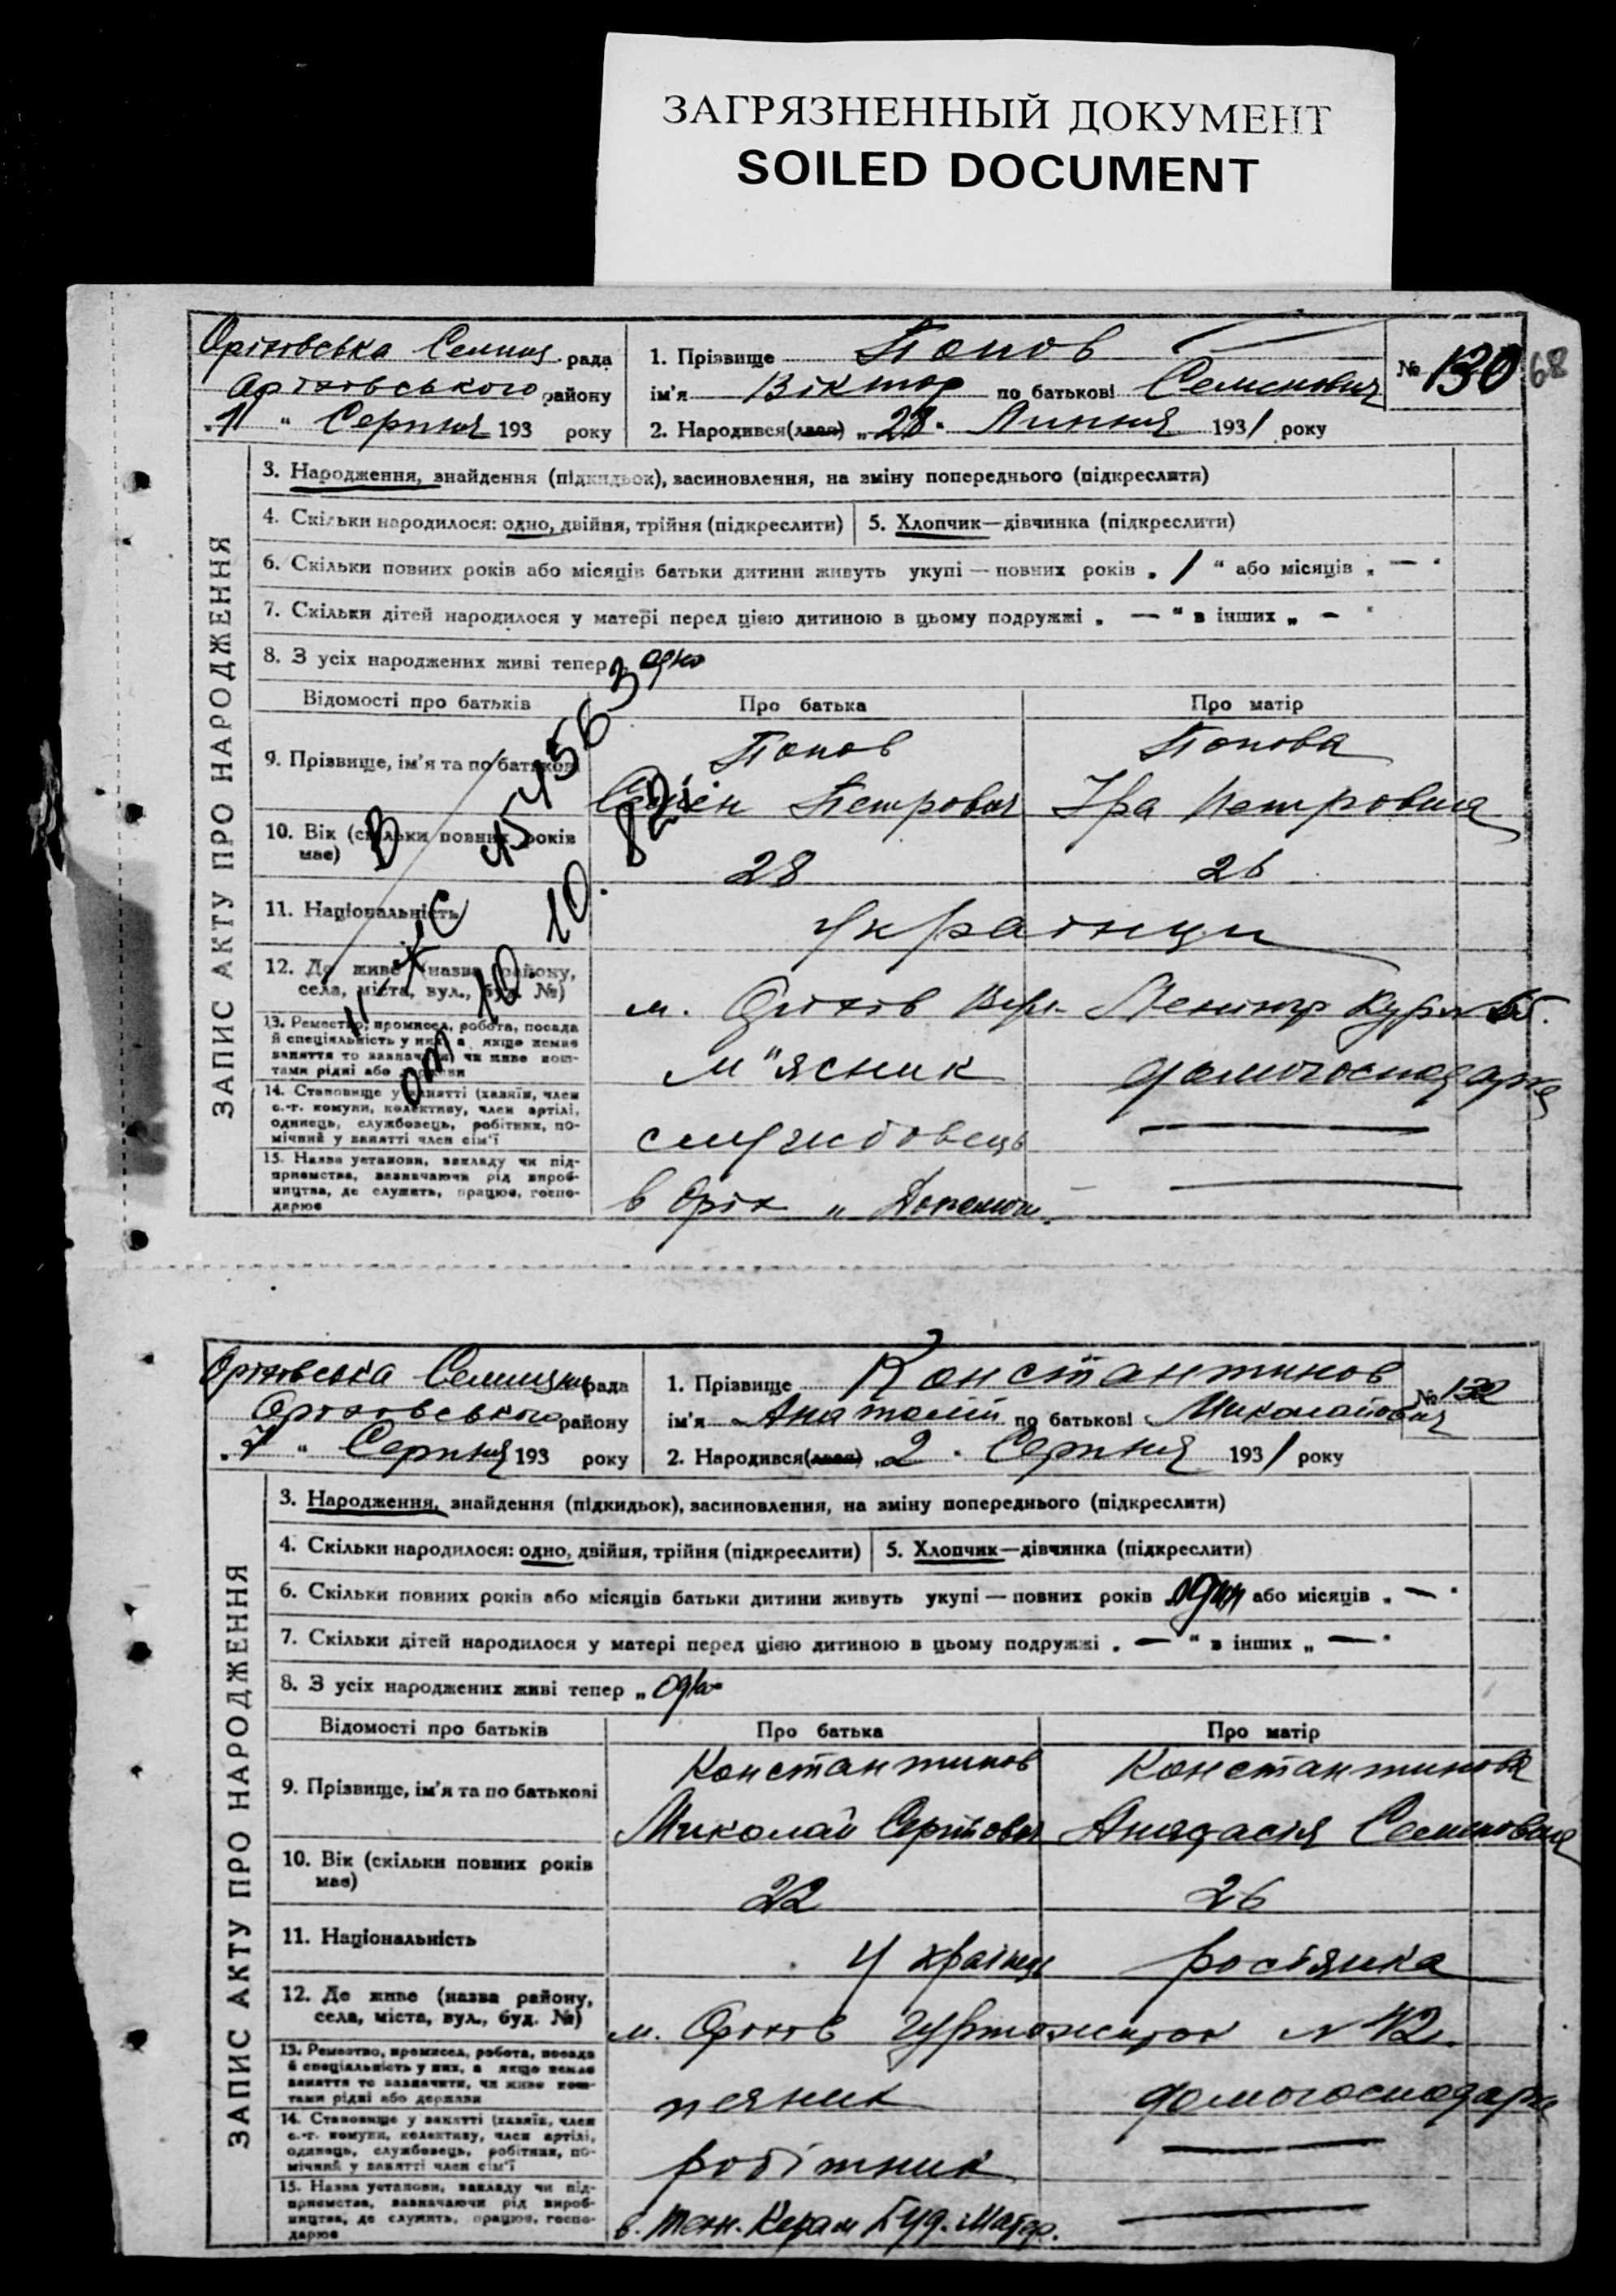 ЗАГРЯЗНЕННЫЙ ДОКУМЕНТ
SOILED DOCUMENT
68
Оріхівська Селищ. рада
Оріхівського району
„1“ Серпня 193 року
1. Прізвище Попов
ім'я Віктор по батькові Семенович
№ 130
2. Народився(лася) „28“ Липня 1931 року
ЗАПИС АКТУ ПРО НАРОДЖЕННЯ
3. Народження, знайдення (підкидьок), засиновлення, на зміну попереднього (підкреслити)
4. Скільки народилося: одно, двійня, трійня (підкреслити) 5. Хлопчик—дівчинка (підкреслити)
6. Скільки повних років або місяців батьки дитини живуть укупі — повних років „1“ або місяців „—“
7. Скільки дітей народилося у матері перед цією дитиною в цьому подружжі „—“ в інших „—“
8. З усіх народжених живі тепер одно
Відомості про батьків Про батька Про матір
9. Прізвище, ім'я та по батькові Попов Попова
Семен Петрович Іра Петровна
10. Вік (скільки повних років
має) 28 26
11. Національність українци
12. Де живе (назва району,
села, міста, вул., буд. №) м. Оріхів
13. Ремество, промисел, робота, посада
й спеціяльність у них, а якщо немає
заняття то зазначити, чи живе кош-
тами рідні або держави м"ясник домогосподарка
14. Становище у занятті (хазяїн, член
с.-г. комуни, колективу, член артілі,
одинець, службовець, робітник, по-
мічний у занятті член сім'ї службовець —
15. Назва установи, закладу чи під-
приємства, зазначаючи рід вироб-
ництва, де служить, працює, госпо-
дарює в Оріх —
от 10.10.82
Оріхівська Селищна рада
Оріхівського району
„7“ Серпня 193 року
1. Прізвище Константинов
ім'я Анатолій по батькові Миколайович
№ 132
2. Народився(лася) „2“ Серпня 1931 року
ЗАПИС АКТУ ПРО НАРОДЖЕННЯ
3. Народження, знайдення (підкидьок), засиновлення, на зміну попереднього (підкреслити)
4. Скільки народилося: одно, двійня, трійня (підкреслити) 5. Хлопчик—дівчинка (підкреслити)
6. Скільки повних років або місяців батьки дитини живуть укупі — повних років один або місяців „—“
7. Скільки дітей народилося у матері перед цією дитиною в цьому подружжі „—“ в інших „—“
8. З усіх народжених живі тепер „одно
Відомості про батьків Про батька Про матір
9. Прізвище, ім'я та по батькові Константинов Константинова
Миколай Сергійович Анастасія Семеновна
10. Вік (скільки повних років
має) 22 26
11. Національність українець росіянка
12. Де живе (назва району,
села, міста, вул., буд. №) м. Оріхів гуртожиток №42
13. Ремество, промисел, робота, посада
й спеціяльність у них, а якщо немає
заняття то зазначити, чи живе кош-
тами рідні або держави домогосподарка
14. Становище у занятті (хазяїн, член
с.-г. комуни, колективу, член артілі,
одинець, службовець, робітник, по-
мічний у занятті член сім'ї робітник —
15. Назва установи, закладу чи під-
приємства, зазначаючи рід вироб-
ництва, де служить, працює, госпо-
дарює в. техн. Керам Буд. Матер. —